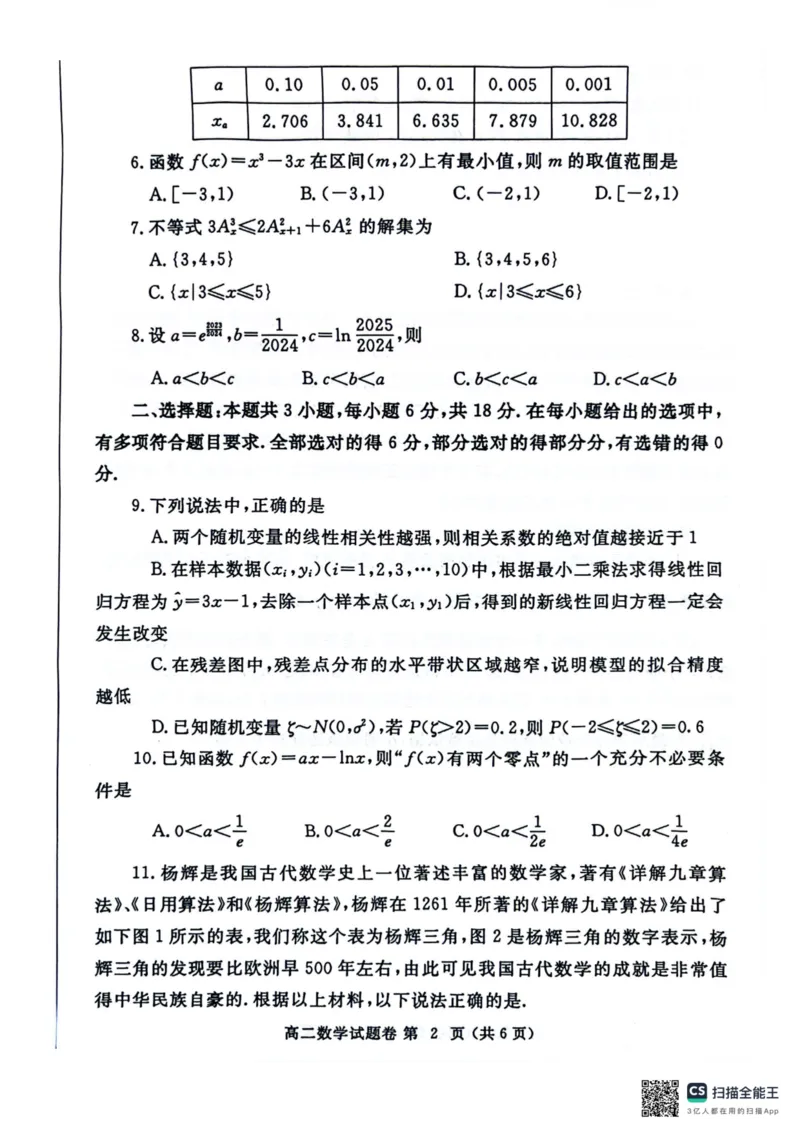 a 0.10 0.05 0.01 0.005 0.001
xₐ 2.706 3.841 6.635 7.879 10.828
6.函数 f(x)=x³-3x 在区间(m,2)上有最小值,则 m 的取值范围是
A.[-3,1) B.(-3,1) C.(-2,1) D.[-2,1)
7.不等式 3A³ₓ≤2A²ₓ₊₁+6A²ₓ 的解集为
A.{3,4,5} B.{3,4,5,6}
C.{x|3≤x≤5} D.{x|3≤x≤6}
8.设 a=e^(2023/2024),b=1/2024,c=ln 2025/2024,则
A.a<b<c B.c<b<a C.b<c<a D.c<a<b
二、选择题:本题共 3 小题,每小题 6 分,共 18 分.在每小题给出的选项中,
有多项符合题目要求.全部选对的得 6 分,部分选对的得部分分,有选错的得 0
分.
9.下列说法中,正确的是
A.两个随机变量的线性相关性越强,则相关系数的绝对值越接近于 1
B.在样本数据(xᵢ,yᵢ)(i=1,2,3,…,10)中,根据最小二乘法求得线性回
归方程为 ŷ=3x-1,去除一个样本点(x₁,y₁)后,得到的新线性回归方程一定会
发生改变
C.在残差图中,残差点分布的水平带状区域越窄,说明模型的拟合精度
越低
D.已知随机变量 ζ~N(0,σ²),若 P(ζ>2)=0.2,则 P(-2≤ζ≤2)=0.6
10.已知函数 f(x)=ax-lnx,则“f(x)有两个零点”的一个充分不必要条
件是
A.0<a<1/e B.0<a<2/e C.0<a<1/2e D.0<a<1/4e
11.杨辉是我国古代数学史上一位著述丰富的数学家,著有《详解九章算
法》、《日用算法》和《杨辉算法》,杨辉在 1261 年所著的《详解九章算法》给出了
如下图 1 所示的表,我们称这个表为杨辉三角,图 2 是杨辉三角的数字表示,杨
辉三角的发现要比欧洲早 500 年左右,由此可见我国古代数学的成就是非常值
得中华民族自豪的.根据以上材料,以下说法正确的是.
高二数学试题卷 第 2 页 (共 6 页)
CS 扫描全能王
3亿人都在用的扫描App